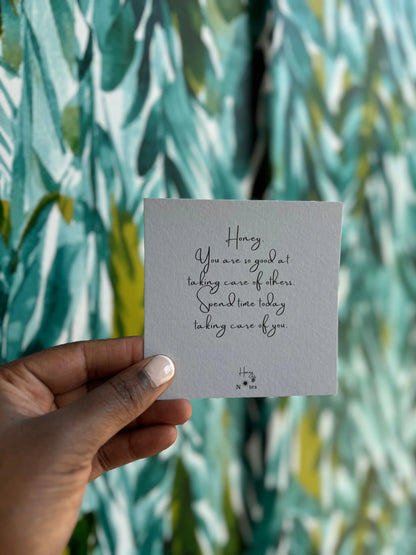 Honey.
You are so good at
taking care of others.
Spend time today
taking care of you.
Hony
Notes